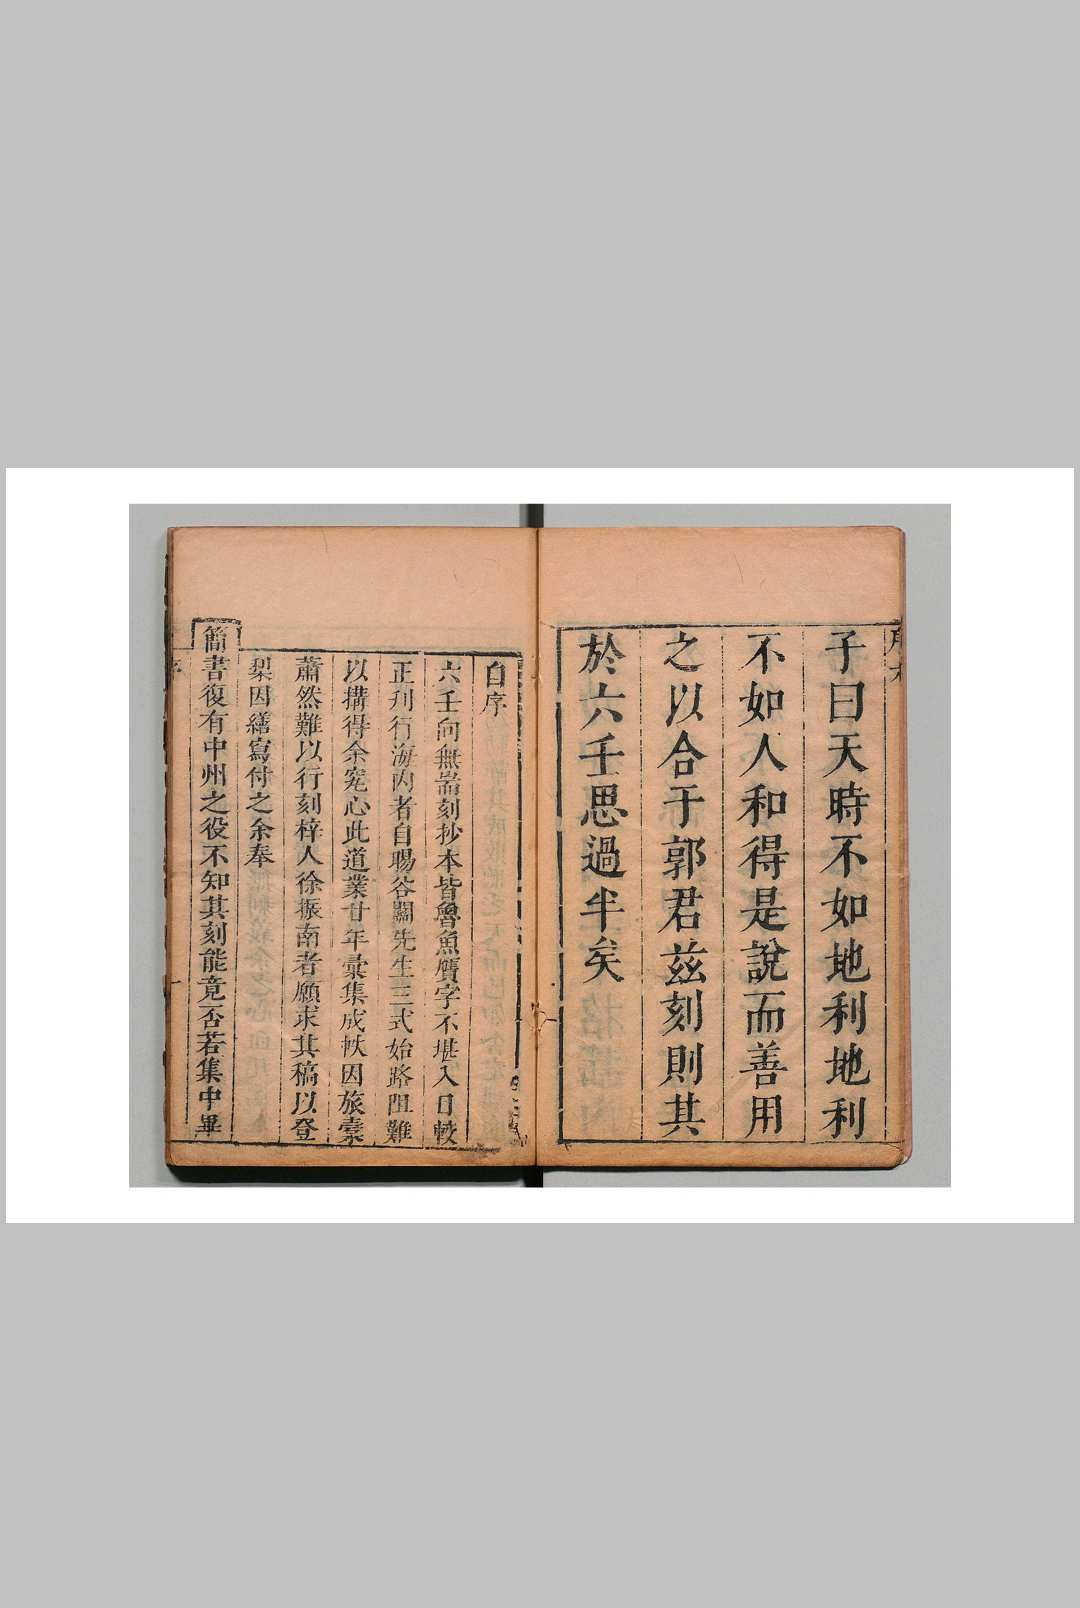 子曰天時不如地利地利
不如人和得是說而善用
之以合于郭君兹刻則其
於六壬思過半矣
自序
六壬向無耑刻抄本皆魯魚贋字不堪入目較
正刋行海内者自暘谷關先生三式始路阻難
以搆得余究心此道業廿年彙集成帙因旅橐
蕭然難以行刻梓人徐振南者願求其稿以登
梨因繕寫付之余奉
簡書復有中州之役不知其刻能竟否若集中畢
序